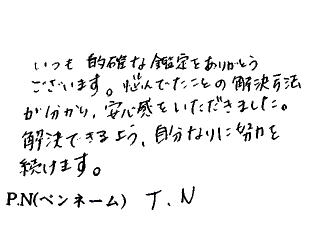 いつも 的確な鑑定をありがとう
ございます。悩んでたことの解決方法
が分かり、安心感をいただきました。
解決できるよう、自分なりに努力を
続けます。
P.N(ペンネーム) T.N